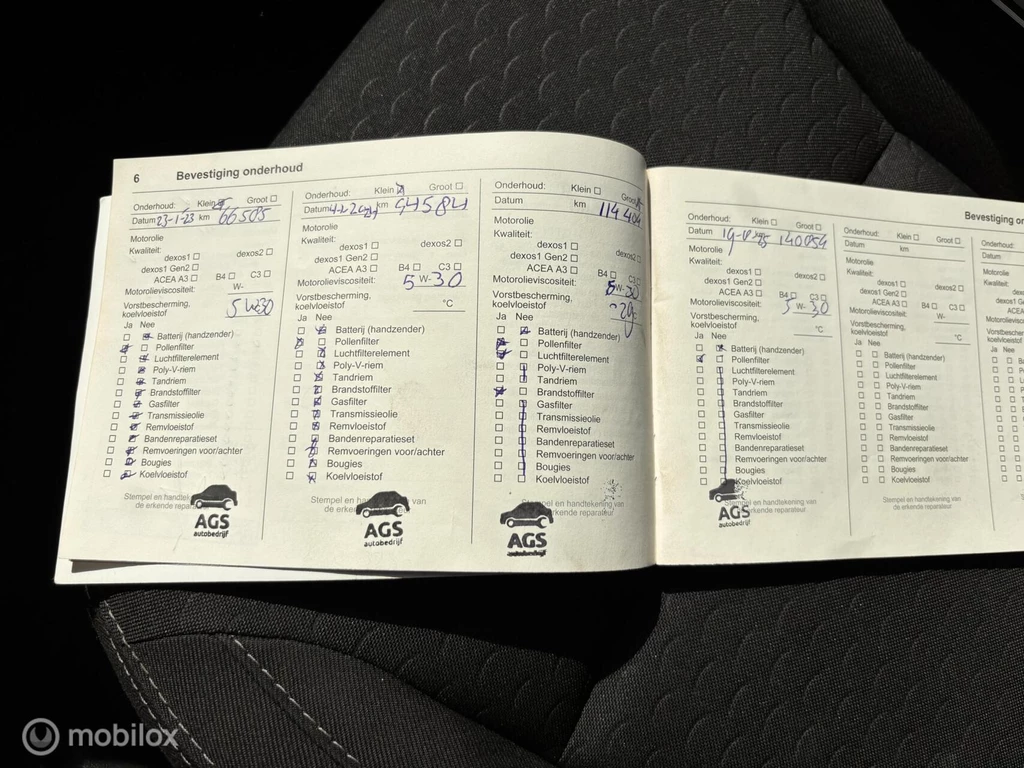 6 Bevestiging onderhoud
Onderhoud: Klein Groot
Datum 23-1-23 km 66505
Motorolie
Kwaliteit:
dexos1 dexos2
dexos1 Gen2
ACEA A3 B4 C3
Motorolieviscositeit: W-
Vorstbescherming,
koelvloeistof 5W30
Ja Nee
Batterij (handzender)
Pollenfilter
Luchtfilterelement
Poly-V-riem
Tandriem
Brandstoffilter
Gasfilter
Transmissieolie
Remvloeistof
Bandenreparatieset
Remvoeringen voor/achter
Bougies
Koelvloeistof
Stempel en handtek
de erkende repara
AGS
autobedrijf
Onderhoud: Klein Groot
Datum km 94584
Motorolie
Kwaliteit:
dexos1 dexos2
dexos1 Gen2
ACEA A3 B4 C3
Motorolieviscositeit: 5 W-30
Vorstbescherming,
koelvloeistof °C
Ja Nee
Batterij (handzender)
Pollenfilter
Luchtfilterelement
Poly-V-riem
Tandriem
Brandstoffilter
Gasfilter
Transmissieolie
Remvloeistof
Bandenreparatieset
Remvoeringen voor/achter
Bougies
Koelvloeistof
Stempel en han van
de erke
AGS
autobedrijf
Onderhoud: Klein Groot
Datum km 114404
Motorolie
Kwaliteit:
dexos1 dexos2
dexos1 Gen2
ACEA A3 B4 C3
Motorolieviscositeit: 5 W-30
Vorstbescherming,
koelvloeistof
Ja Nee
Batterij (handzender)
Pollenfilter
Luchtfilterelement
Poly-V-riem
Tandriem
Brandstoffilter
Gasfilter
Transmissieolie
Remvloeistof
Bandenreparatieset
Remvoeringen voor/achter
Bougies
Koelvloeistof
en handtekening van
de erkende reparateur
AGS
autobedrijf
Bevestiging on
Onderhoud: Klein Groot
Datum 140054
Motorolie
Kwaliteit:
dexos1 dexos2
dexos1 Gen2
ACEA A3 B4 C3
Motorolieviscositeit: 5 W-30
Vorstbescherming,
koelvloeistof °C
Ja Nee
Batterij (handzender)
Pollenfilter
Luchtfilterelement
Poly-V-riem
Tandriem
Brandstoffilter
Gasfilter
Transmissieolie
Remvloeistof
Bandenreparatieset
Remvoeringen voor/achter
Bougies
Koelvloeistof
en handtekening van
erkende reparateur
AGS
autobedrijf
Onderhoud: Klein Groot
Datum km
Motorolie
Kwaliteit:
dexos1 dexos2
dexos1 Gen2
ACEA A3 B4 C3
Motorolieviscositeit: W-
Vorstbescherming,
koelvloeistof °C
Ja Nee
Batterij (handzender)
Pollenfilter
Luchtfilterelement
Poly-V-riem
Tandriem
Brandstoffilter
Gasfilter
Transmissieolie
Remvloeistof
Bandenreparatieset
Remvoeringen voor/achter
Bougies
Koelvloeistof
Stempel en handtekening van
de erkende reparateur
Onderhoud:
Datum
Motorolie
Kwaliteit:
dex
dexos1
ACEA
Motorolievisc
Vorstbescher
koelvloeistof
Ja Nee
mobilox